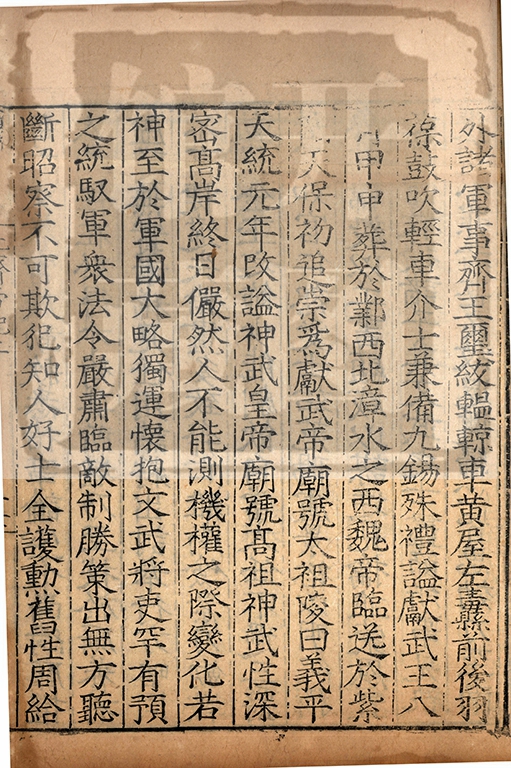 外諸軍事齊王璽紱轀輬車黃屋左纛縣前後羽
葆鼓吹輕車介士兼備九錫殊禮謚獻武王八
月甲申葬於鄴西北漳水之西魏帝臨送於紫
天保初追崇爲獻武帝廟號太祖陵曰義平
天統元年改謚神武皇帝廟號髙祖神武性深
宻髙岸終日儼然人不能測機權之際變化若
神至於軍國大略獨運懷抱文武將吏罕有預
之統馭軍衆法令嚴肅臨敵制勝策出無方聽
斷昭察不可欺犯知人好士全護勲舊性周給